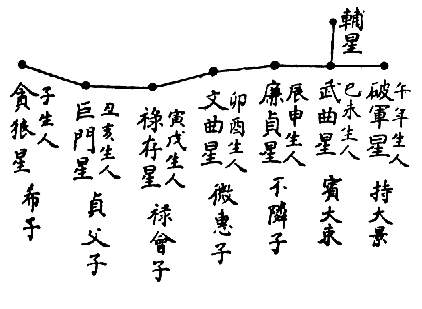 輔星
午年生人
破軍星 持大景
巳未生人
武曲星 賓大東
辰申生人
廉貞星 不隣子
卯酉生人
文曲星 微惠子
寅戌生人
祿存星 禄會子
丑亥生人
巨門星 貞父子
子生人
貪狼星 希子